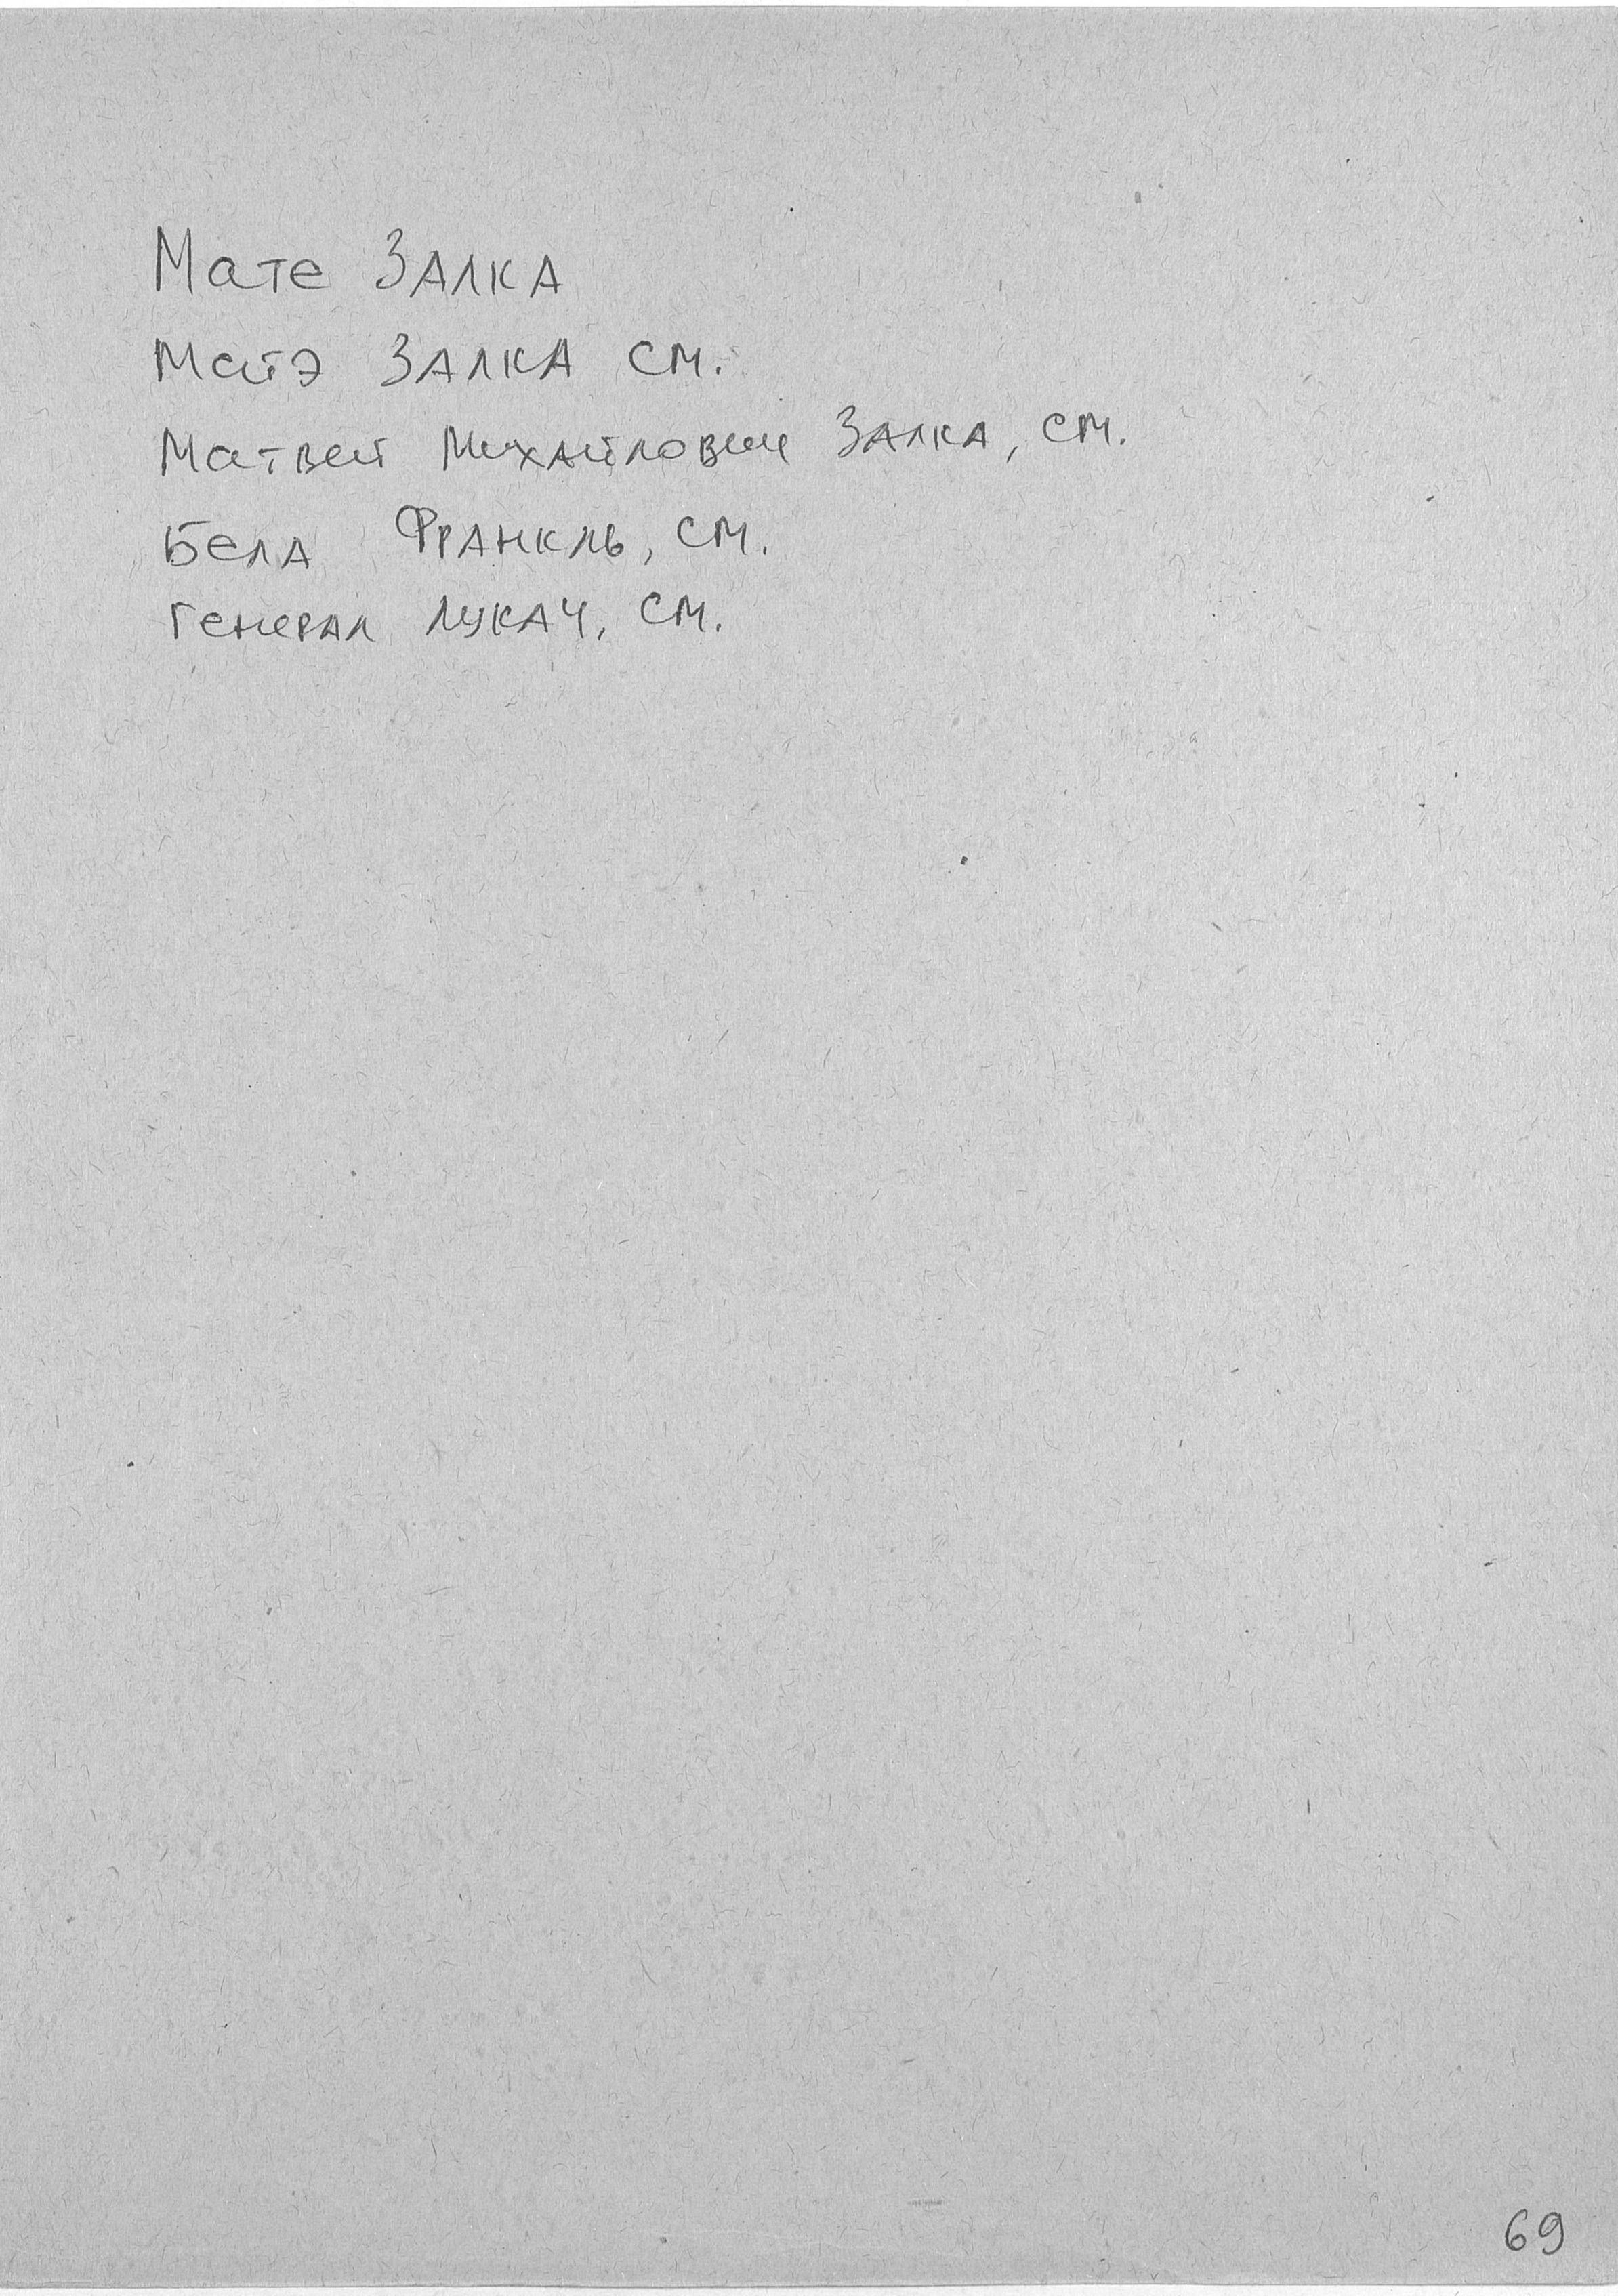 Мате Залка
Матэ Залка см.
Матвей Михайлович Залка, см.
Бела Франкль, см.
Генерал Лукач, см.
69